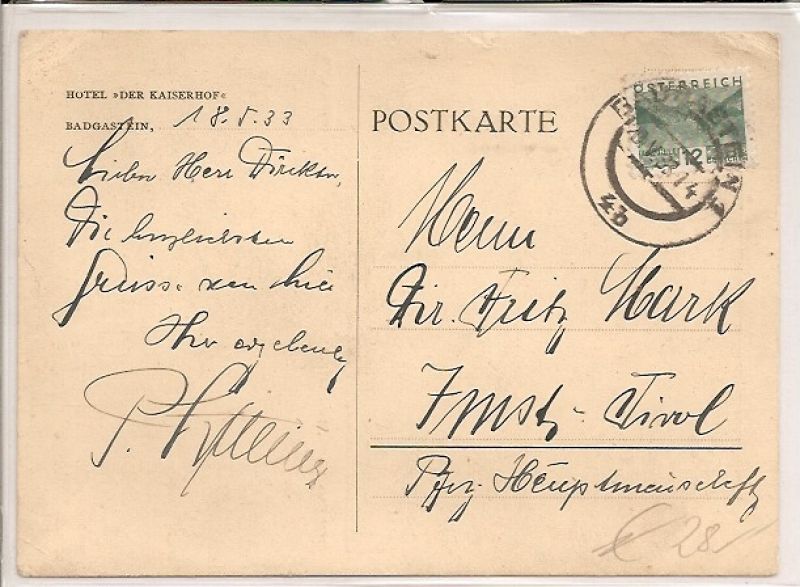 HOTEL »DER KAISERHOF«
BADGASTEIN, 18.5.33
Lieber Herr Direktor,
Die herzlichsten
Grüsse von hier
Ihr ergebener
P.
POSTKARTE
ÖSTERREICH
12
BADGASTEIN 1
4b
Herrn
Dir. Fritz Mark
Imst, Tirol
Bez. Hauptmannschaft
€ 28